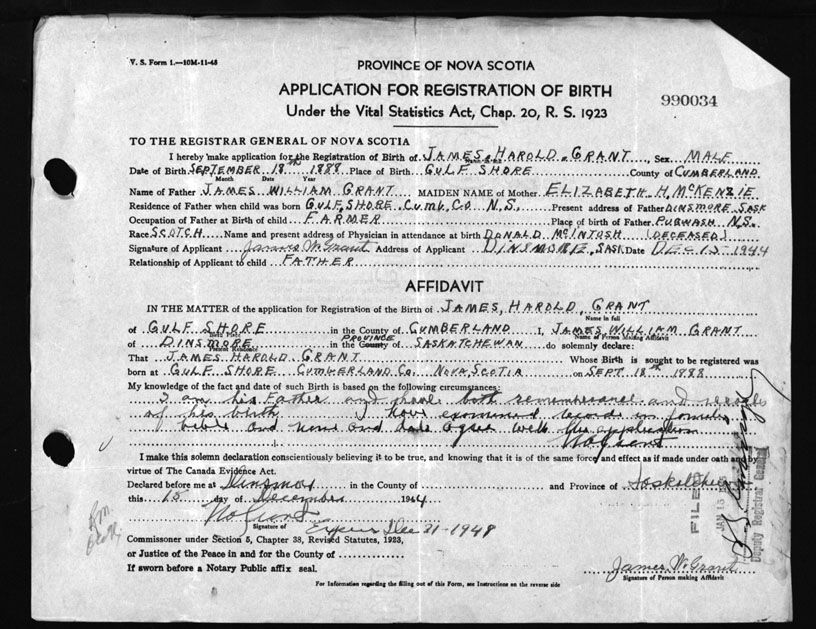 V. S. Form 1.—10M-11-43
PROVINCE OF NOVA SCOTIA
APPLICATION FOR REGISTRATION OF BIRTH
990034
Under the Vital Statistics Act, Chap. 20, R. S. 1923
TO THE REGISTRAR GENERAL OF NOVA SCOTIA
I hereby make application for the Registration of Birth of JAMES, HAROLD, GRANT, Sex MALE
Date of Birth SEPTEMBER 18th 1888 Place of Birth GULF SHORE County of CUMBERLAND
Month Date Year
Name of Father JAMES WILLIAM GRANT MAIDEN NAME of Mother ELIZABETH H. McKENZIE
Residence of Father when child was born GULF SHORE CUMB. CO N.S. Present address of Father DINSMORE SASK
Occupation of Father at Birth of child FARMER Place of birth of Father PUGWASH N.S.
Race SCOTCH Name and present address of Physician in attendance at birth DONALD McINTOSH (DECEASED)
Signature of Applicant James W Grant Address of Applicant DINSMORE, SASK. Date DEC 15-1944
Relationship of Applicant to child FATHER
AFFIDAVIT
IN THE MATTER of the application for Registration of the Birth of JAMES, HAROLD, GRANT
Name in full
of GULF SHORE in the County of CUMBERLAND I, JAMES WILLIAM GRANT
Birth Place Name of Person Making Affidavit
of DINSMORE in the County of PROVINCE SASKATCHEWAN do solemnly declare:
Present Residence
That JAMES HAROLD GRANT Whose Birth is sought to be registered was
born at GULF SHORE CUMBERLAND CO. NOVA SCOTIA on SEPT 18th 1888
My knowledge of the fact and date of such Birth is based on the following circumstances:
I am his Father and have both remembrance and
of his birth I have examined records in family
bible and name and date agree with the application
I make this solemn declaration conscientiously believing it to be true, and knowing that it is of the same force and effect as if made under oath and by
virtue of The Canada Evidence Act.
Declared before me at Dinsmore in the County of and Province of
this 15 day of December 1944
Signature of Expires Dec 31-1948
Commissioner under Section 5, Chapter 38, Revised Statutes, 1923,
or Justice of the Peace in and for the County of
If sworn before a Notary Public affix seal.
James W Grant
Signature of Person making Affidavit
For Information regarding the filling out of this Form, see Instructions on the reverse side
FILED
JAN 15
Deputy Registrar General